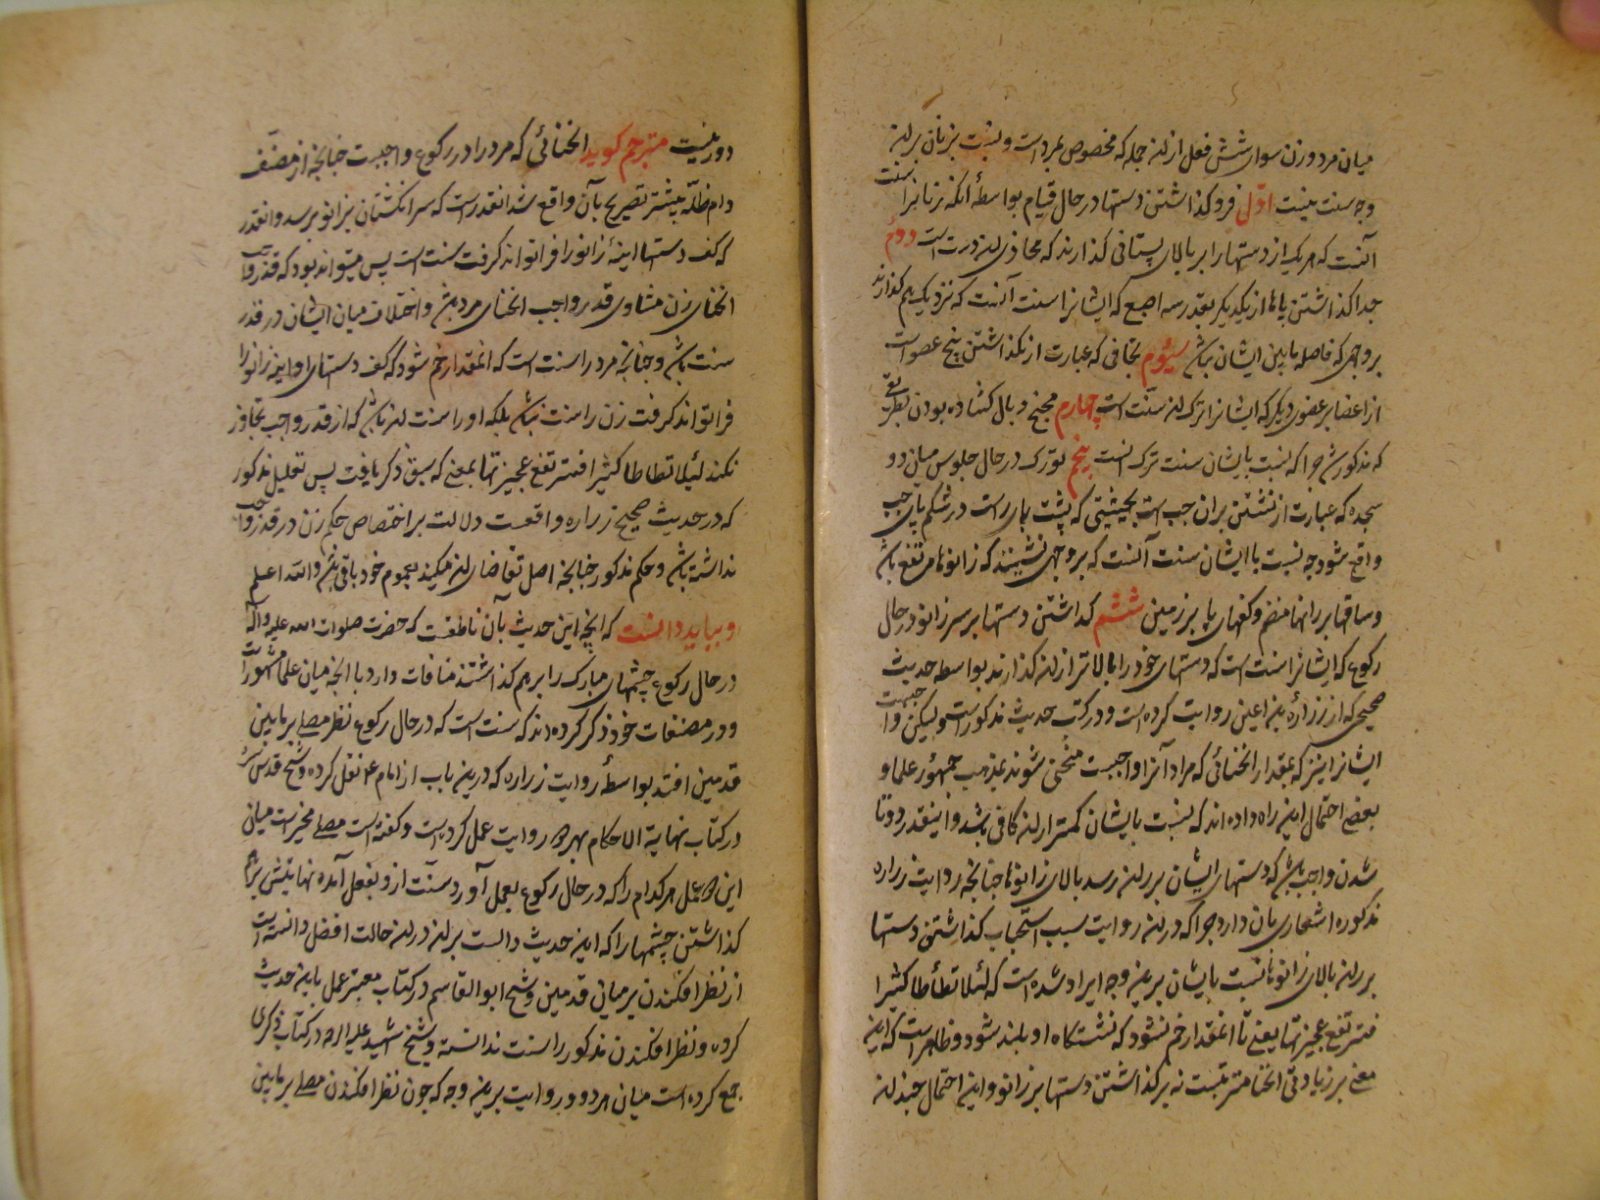 میان مرد و زن سوای شش فعل از ان جمله که مخصوص بمرد است و نسبت بزنان بر ان
وجه سنت نیست اوّل فرو کذاشتن دستها در حال قیام بواسطهٔ آنکه زنانرا سنت
آنست که هر یک از دستها را بر بالای پستانی کذارند که محاذی ان دست است دوم
جدا کذاشتن پاها از یکدیکر بقدر سه اصبع که ایشانرا سنت آنست که نزدیک هم کذارند
بر وجهی که فاصله مابین ایشان نباشد سیوم تجافی که عبارت از نکذاشتن هیچ عضو است
از اعضا بر عضوی دیکر که ایشانرا ترک ان سنّت است چهارم مجنح و بال کشاده بودن بطریقی
که مذکور شد چرا که نسبت بایشان سنت ترک انست پنجم تورک در حال جلوس میان دو
سجده که عبارت از نشستن بران چپ است بحیثیتی که پشت پای راست در شکم پای چپ
واقع شود چه نسبت باایشان سنت آنست که بر وجهی نشینند که زانوها مرتفع باشد
و ساقها برانها منضم و کفهای پا بر زمین ششم کذاشتن دستها بر سر زانو در حال
رکوع که ایشانرا سنت است که دستهای خود را بالاتر از ان کذارند بواسطه حدیث
صحیحی که از زرارهٔ بن اعین روایت کرده است و در کتب حدیث مذکور است و لیکن واجبست
ایشانرا نیز که بمقدار انحنائی که مراد آنرا واجبست منحنی شوند بمذهب جمهور علما و
بعضی احتمال این راه داده اند که نسبت بایشان کمتر از ان کافی باشد و اینقدر دوتا
شدن واجب باشد که دستهای ایشان بر ران رسد بالای زانوها چنانچه روایت زراره
مذکوره اشعاری بان دارد چرا که در ان روایت سبب استحباب کذاشتن دستها
بر ران بالای زانوها نسبت بایشان برین وجه ایراد شده است که لئلا تطأطأ کثیرا
فترتفع عجیزتها یعنی تا انمقدار خم نشود که نشستکاه او بلند شود و ظاهر است که این
معنی بر زیادتی انحنا مترتبست نه بر کذاشتن دستها بر زانو و این احتمال چندان
دور نیست مترجم کوید انحنائی که مرد را در رکوع واجبست چنانچه از مصنّف
دام ظلّه پیشتر تصریح بآن واقع شد انقدر است که سر انکشتان بزانو برسد و انقدر
که کف دستها اینهٔ زانو را فرا تواند کرفت سنت است پس میتواند بود که قدر واجب
انحنای زن مساوی قدر واجب انحنای مرد باشد و اختلاف میان ایشان در قدر
سنت باشد و چنانچه مرد را سنت است که انمقدار خم شود که کف دستهای او اینه زانو را
فرا تواند کرفت زن را سنت نباشد بلکه او را سنت ان باشد که از قدر واجب تجاوز
نکند لئیلا تطاطا کثیرا فترتفع عجیزتها بمعنی که سبق ذکر یافت پس تعلیل مذکور
که در حدیث صحیح زراره واقعست دلالت بر اختصاص حکم زن در قدر واجب
نداشته باشد و حکم مذکور چنانچه اصل تقاضای ان میکند بعموم خود باقی باشد والله اعلم
و بباید دانست که انچه این حدیث بآن ناطقست که حضرت صلوات الله علیه و آله
در حال رکوع چشمهای مبارک را بر هم کذاشتند منافات دارد با انچه میان علما مشهور است
و در مصنفات خود ذکر کرده اند که سنت است که در حال رکوع نظر مصلی بر مابین
قدمین افتد بواسطهٔ روایت زراره که درین باب از امام ع نقل کرده و شیخ قدس سره
در کتاب نهایة الاحکام بهر دو روایت عمل کرده است و کفته است مصلی مخیر است میان
این دو عمل هر کدام را که در حال رکوع بعمل آورد سنت ازو بفعل آمده نهایتش
کذاشتن چشمها را که این حدیث دالست بر ان در ان حالت افضل دانسته است
از نظر افکندن بر میان قدمین و شیخ ابوالقاسم در کتاب معتبر عمل باین حدیث
کرده و نظر افکندن مذکور را سنت ندانسته و شیخ شهید علیه الرحمه در کتاب ذکری
جمع کرده است میان هر دو روایت برین وجه که چون نظر افکندن مصلی بر مابین